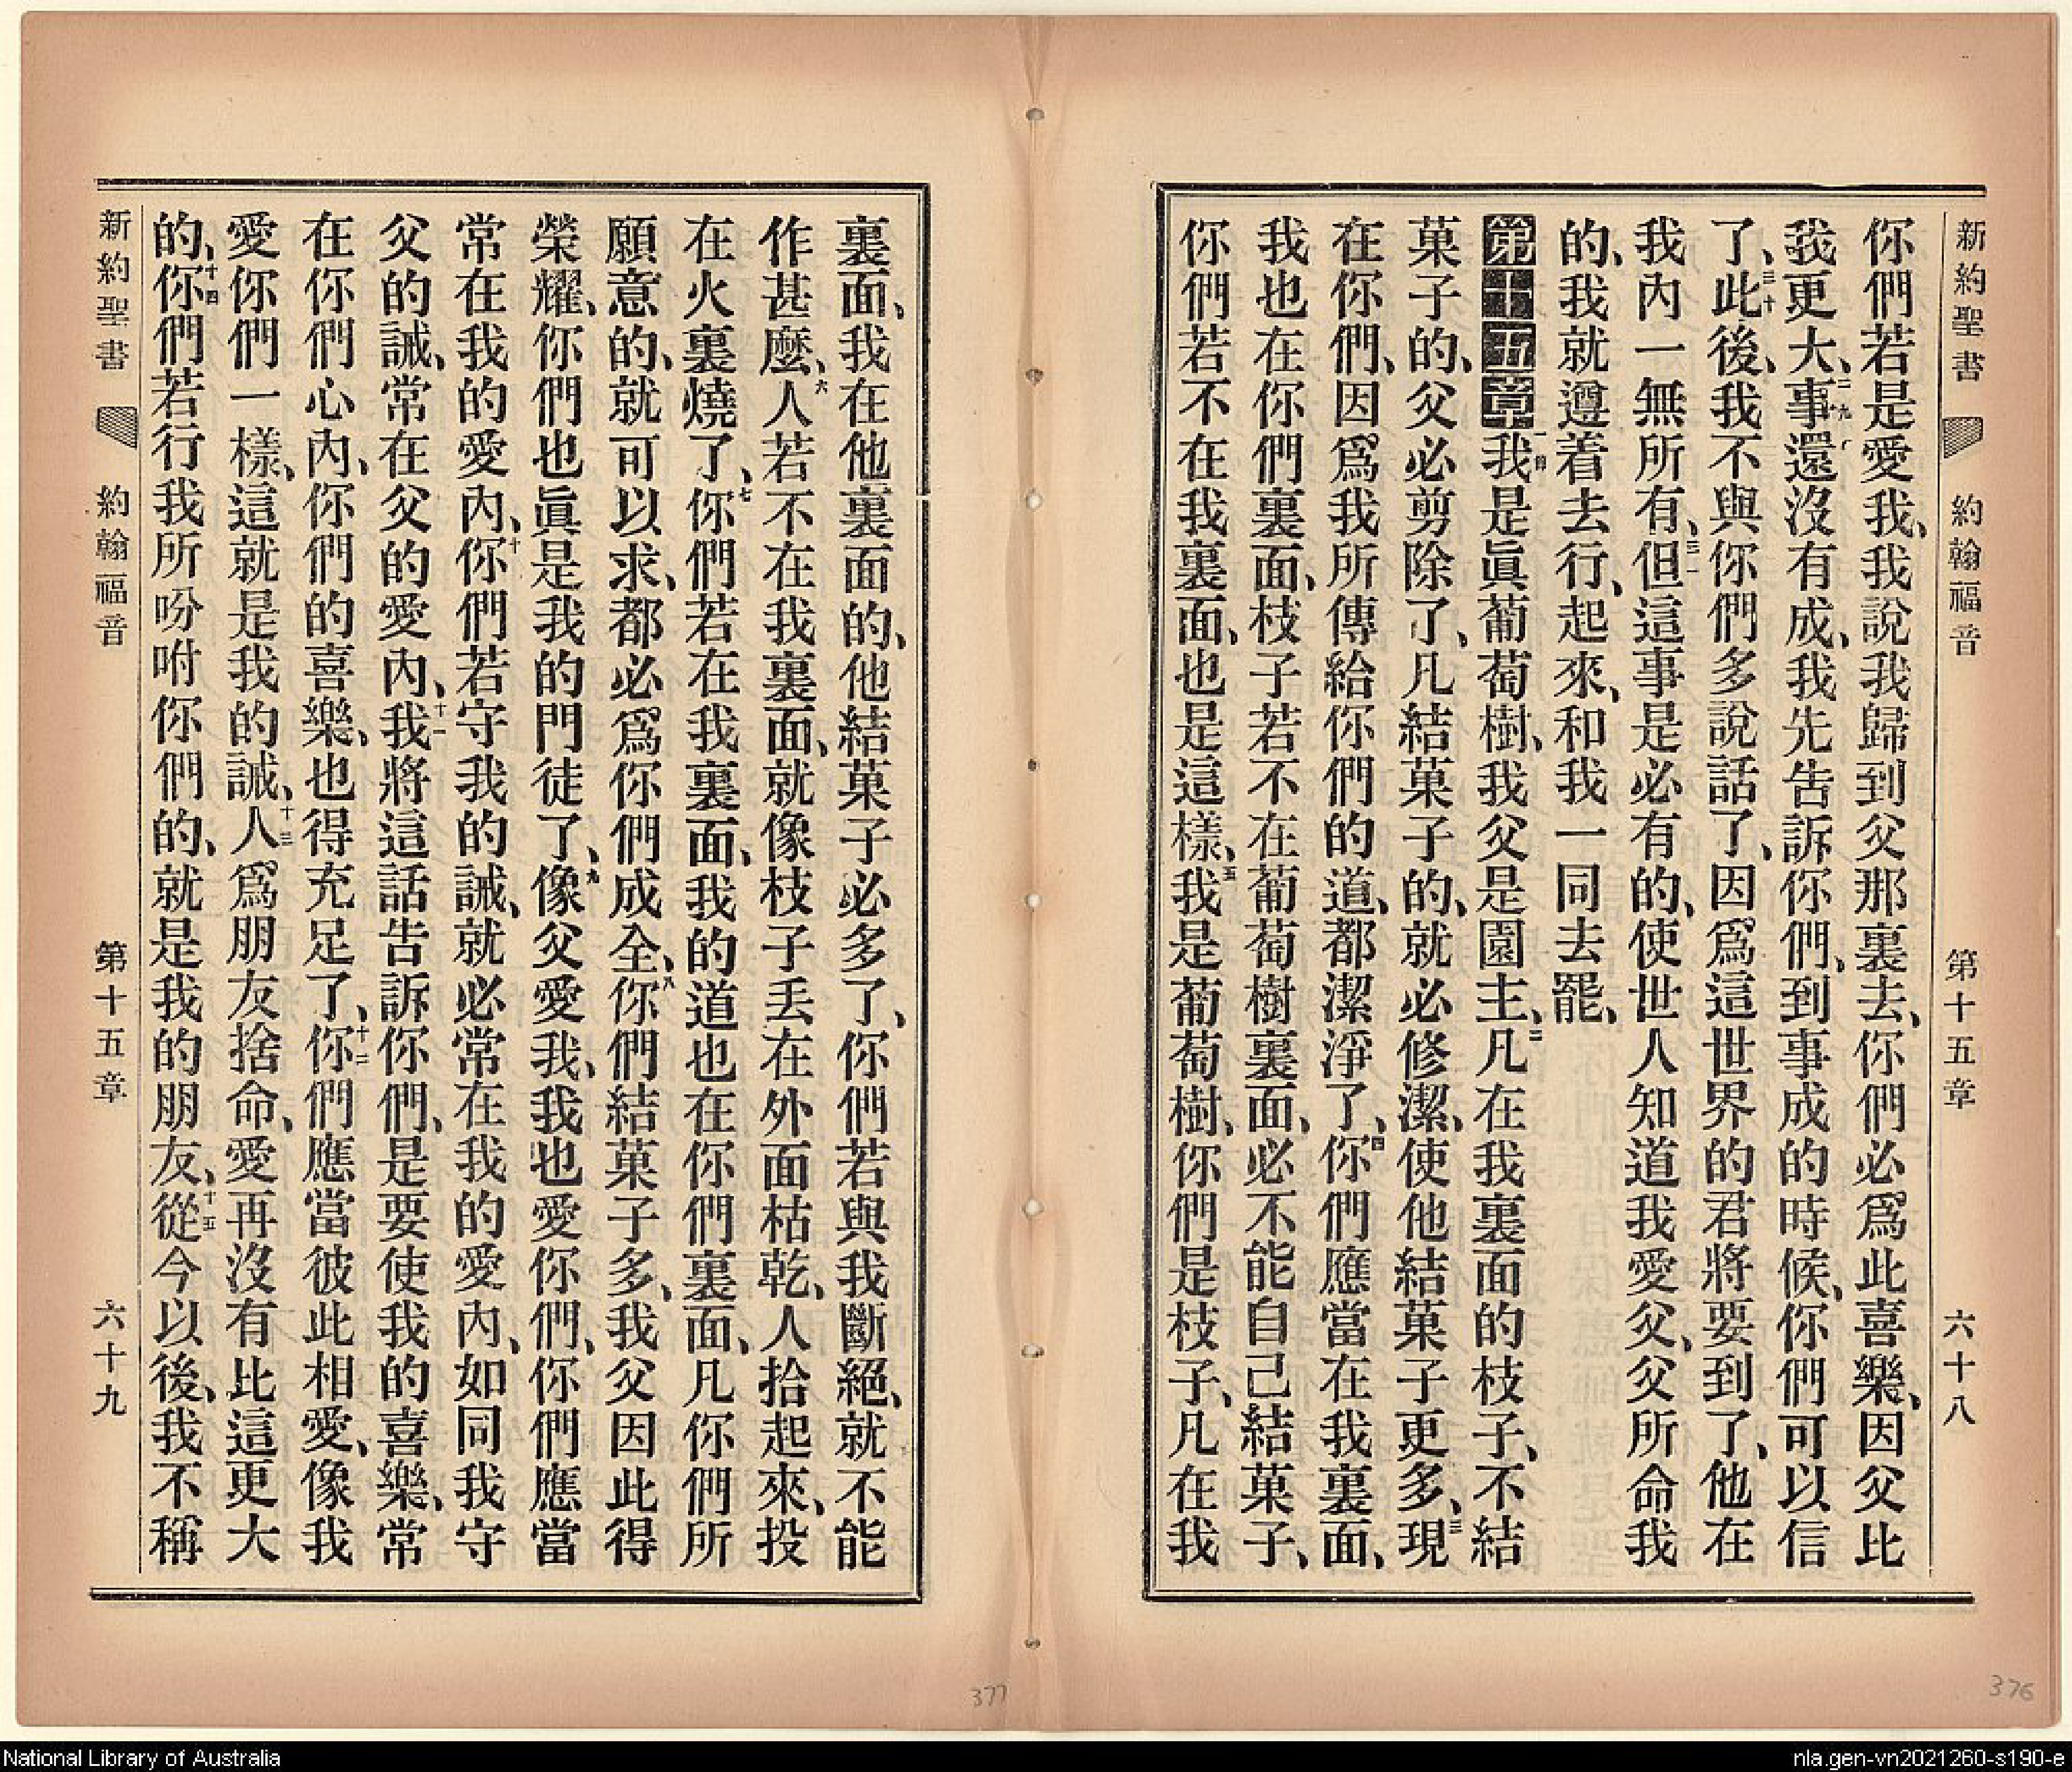 新約聖書 約翰福音 第十五章 六十八
你們若是愛我、我說我歸到父那裏去、你們必爲此喜樂、因父比
我更大、二九事還沒有成、我先告訴你們、到事成的時候、你們可以信
了、三十此後、我不與你們多說話了、因爲這世界的君將要到了、他在
我內一無所有、三一但這事是必有的、使世人知道我愛父、父所命我
的、我就遵着去行、起來、和我一同去罷、
第十五章一節我是眞葡萄樹、我父是園主、二凡在我裏面的枝子、不結
菓子的、父必剪除了、凡結菓子的、就必修潔、使他結菓子更多、三現
在你們、因爲我所傳給你們的道、都潔淨了、四你們應當在我裏面、
我也在你們裏面、枝子若不在葡萄樹裏面、必不能自己結菓子、
你們若不在我裏面、也是這樣、五我是葡萄樹、你們是枝子、凡在我
裏面、我在他裏面的、他結菓子必多了、你們若與我斷絕、就不能
作甚麼、六人若不在我裏面、就像枝子丢在外面枯乾、人拾起來、投
在火裏燒了、七你們若在我裏面、我的道也在你們裏面、凡你們所
願意的、就可以求、都必爲你們成全、八你們結菓子多、我父因此得
榮耀、你們也眞是我的門徒了、九像父愛我、我也愛你們、你們應當
常在我的愛內、十你們若守我的誡、就必常在我的愛內、如同我守
父的誡、常在父的愛內、十一我將這話告訴你們、是要使我的喜樂、常
在你們心內、你們的喜樂、也得充足了、十二你們應當彼此相愛、像我
愛你們一樣、這就是我的誡、十三人爲朋友捨命、愛再沒有比這更大
的、十四你們若行我所吩咐你們的、就是我的朋友、十五從今以後、我不稱
新約聖書 約翰福音 第十五章 六十九
377
376
National Library of Australia
nla.gen-vn2021260-s190-e